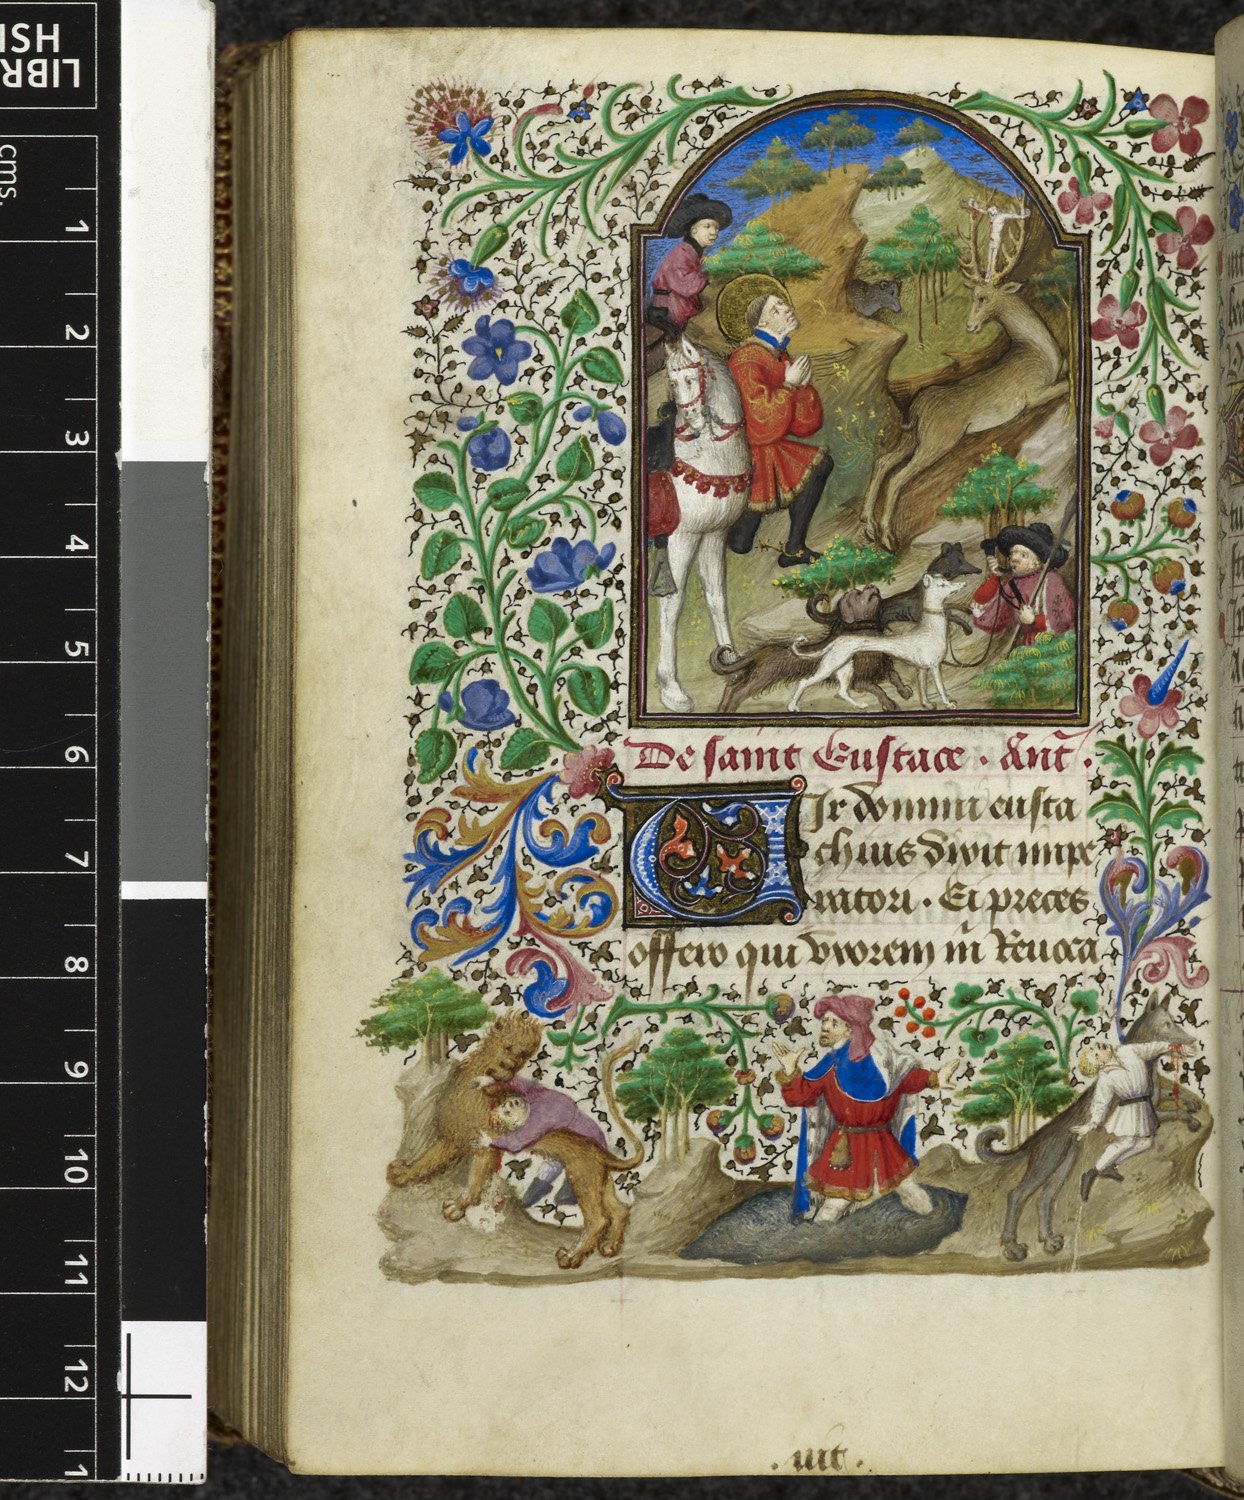 LIBR
HSI
cms.
1
2
3
4
5
6
7
8
9
10
11
12
1
De saint Eustace . Ant̄ .
Uir domini eusta
chius dixit impe
ratori . Ei preces
offero qui vxorem in̄